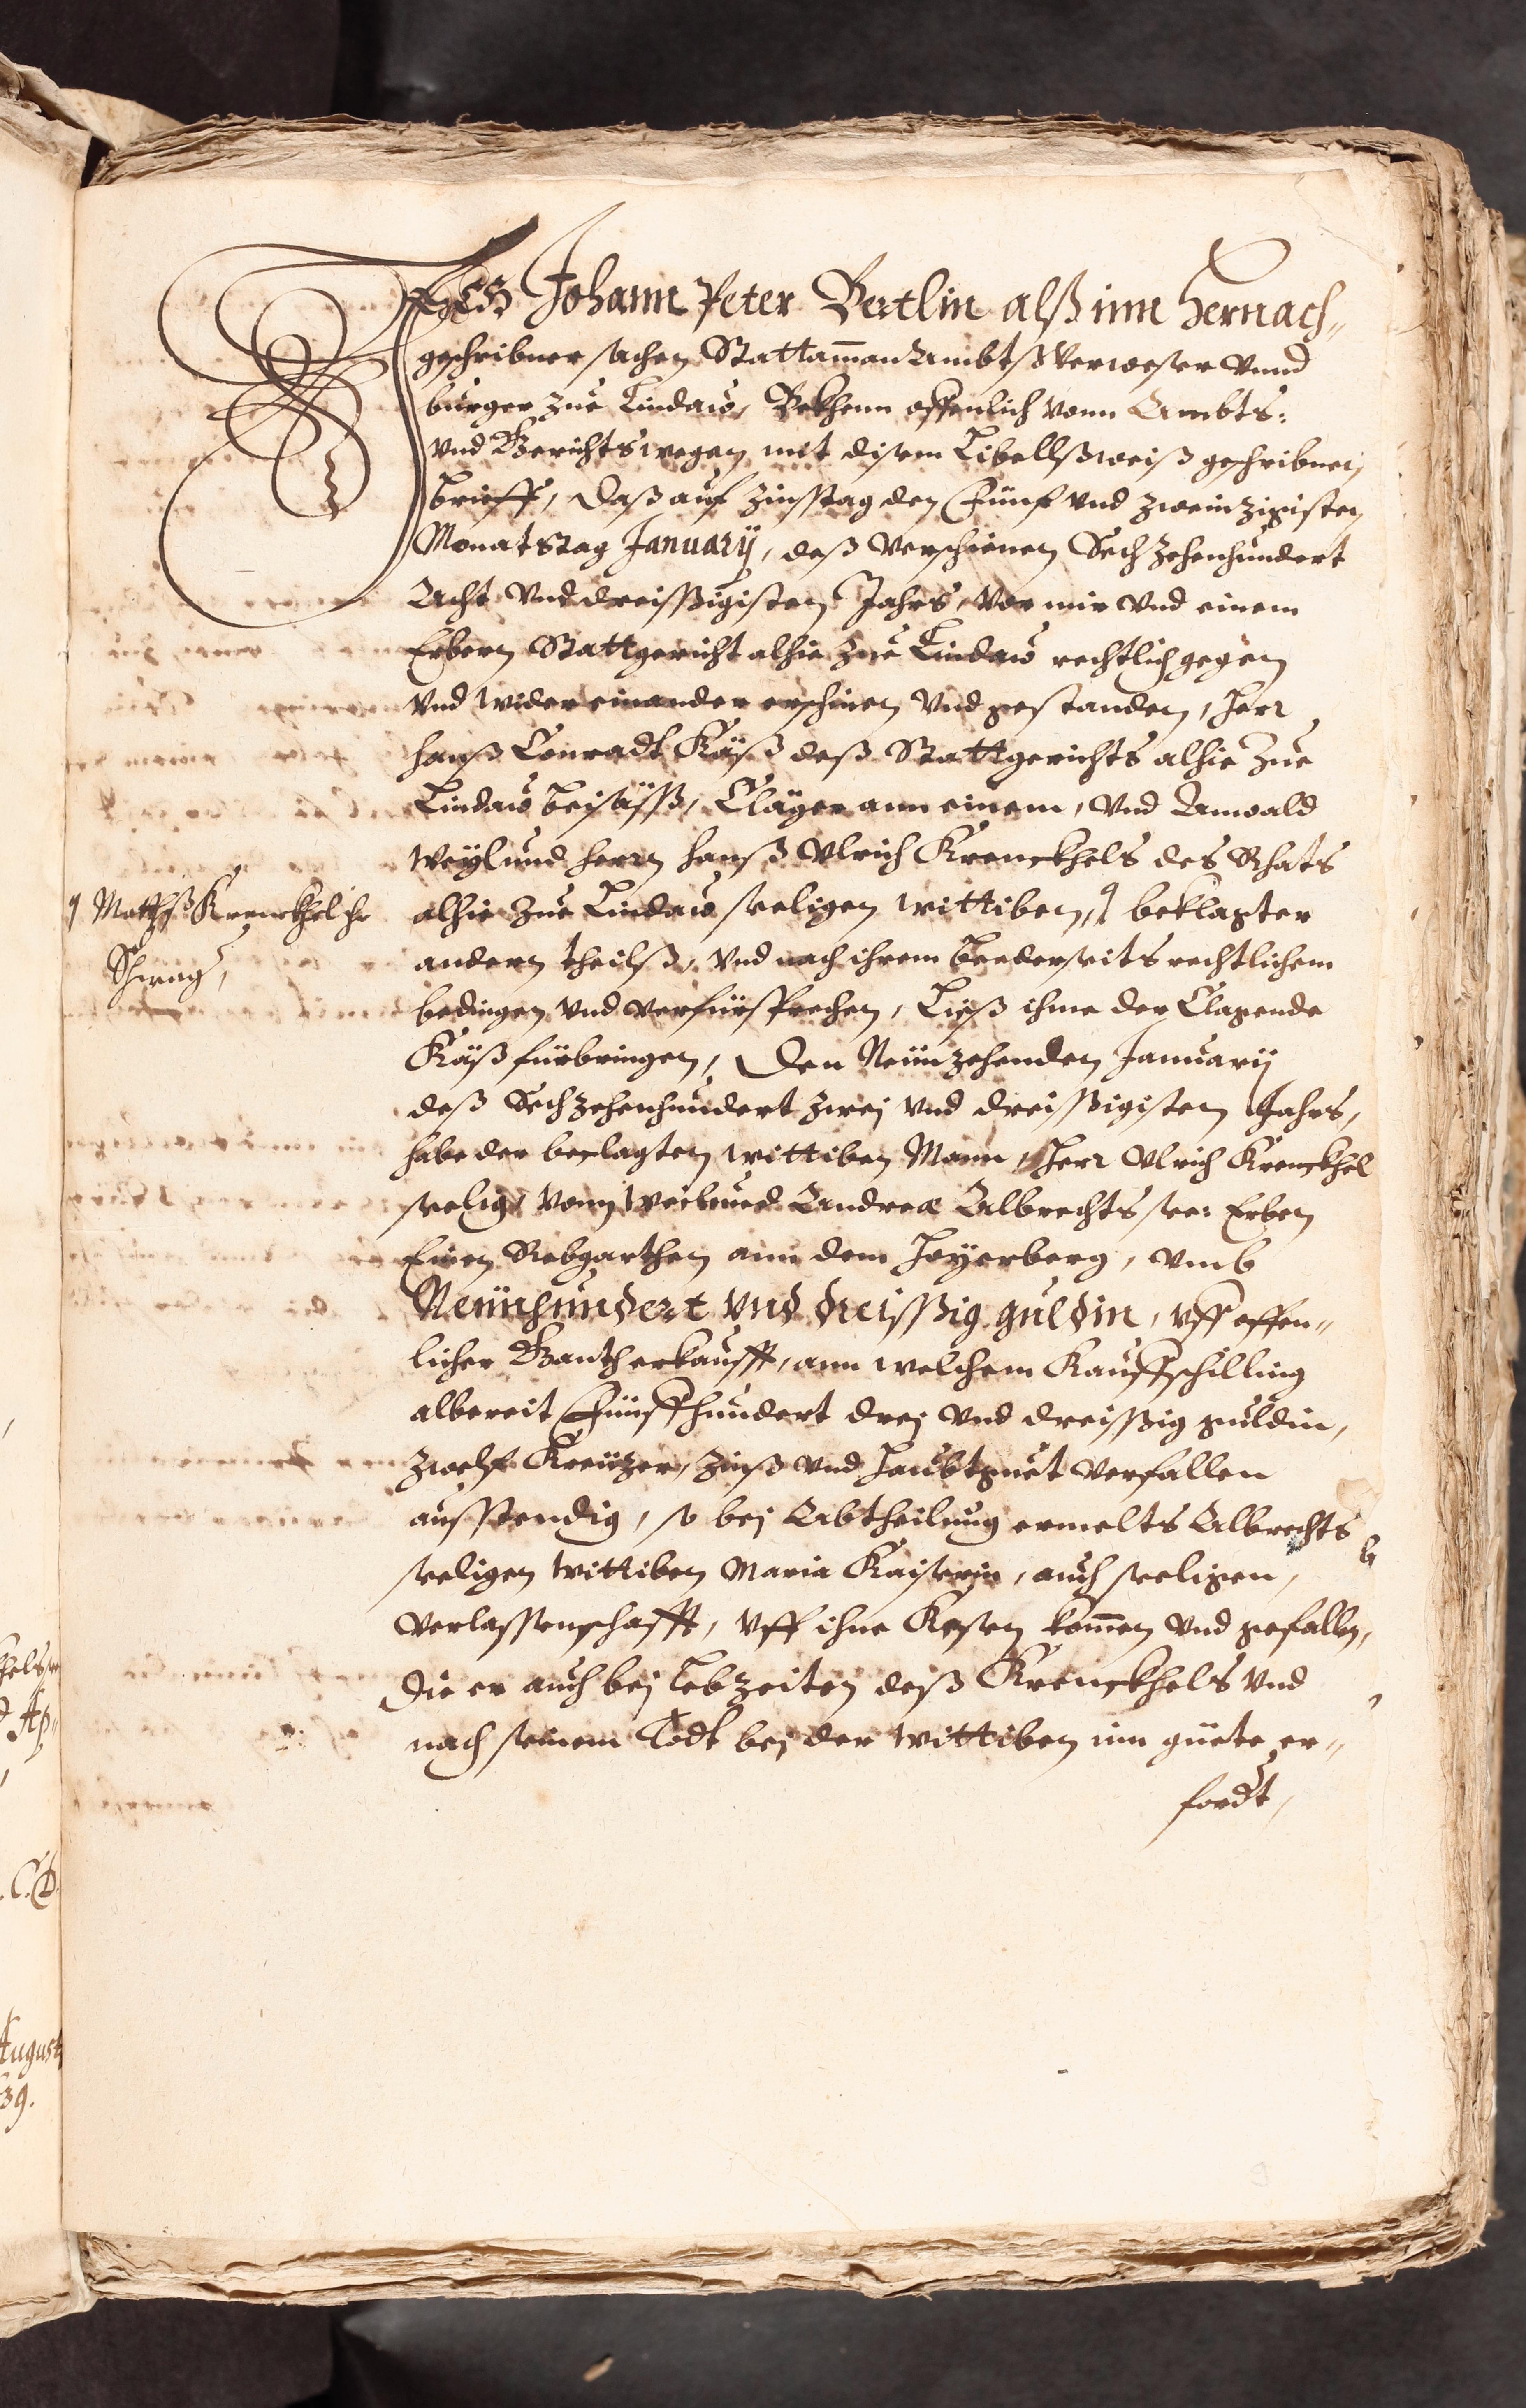 ICH Johann Peter Bertlin alß inn hernach„
geschribner sachen Stattaman Ambtßverweser vnnd
burger zue Lindaw, Bekhenn offenlich vonn Ambts:
vnd Gerichts wegen mit disem Libellßweiß geschribnen
brieff, Daß auf Zinstag den Fünf vnd zweinzigisten
Monatstag January, deß verschienen Sechzehenhundert
Acht vnd dreissigisten Jahrs, vor mir vnd einem
Erbern Stattgericht alhie zue Lindaw rechtlich gegen
vnd wider einander erschinen vnd gestanden, Herr
Hanß Conradt Käß deß Stattgerichts alhie zue
Lindaw beisäß, Cläger ann einem, vnd Anwald
Weylund Herrn Hanß Vlrich Krenckhels des Rhats
alhie zue Lindaw seeligen wittiben, beklagter
Matthß Krenckhel ihr
Schwag
andern theilß, vnd nach ihrem beederseits rechtlichem
bedingen vnd verfürsprechen, Ließ ihme der Clagende
Käß fürbringen, Den Neünzehenden January
deß Sechzehenhundert zwej vnd dreissigisten Jahrs,
habe der beclagten wittiben Mann, Herr Vlrich Krenckhel
seelig, vonn Weilund Andrea Albrechts see: Erben
Einen Rebgarthen ann dem Hoyerberg, vmb
Neünhundert vnd dreissig guldin, vff offen„
licher Ganth erkaufft, ann welchem Kauffschilling
albereit Fünffhundert drej vnd dreissig guldin,
zwelf Kreüzer, Zinß vnd Haubtguet verfallen
ausstendig, so bej Abtheilung ermelts Albrechts
seeligen wittiben Maria Kaiserin, auch seeligen,
verlassenschafft, vff ihne Kesen komen vnd gefallen,
Die er auch bej Lebzeiten deß Krenckhels vnd
nach seinem Todt bej der wittiben inn güete er„
fordt,